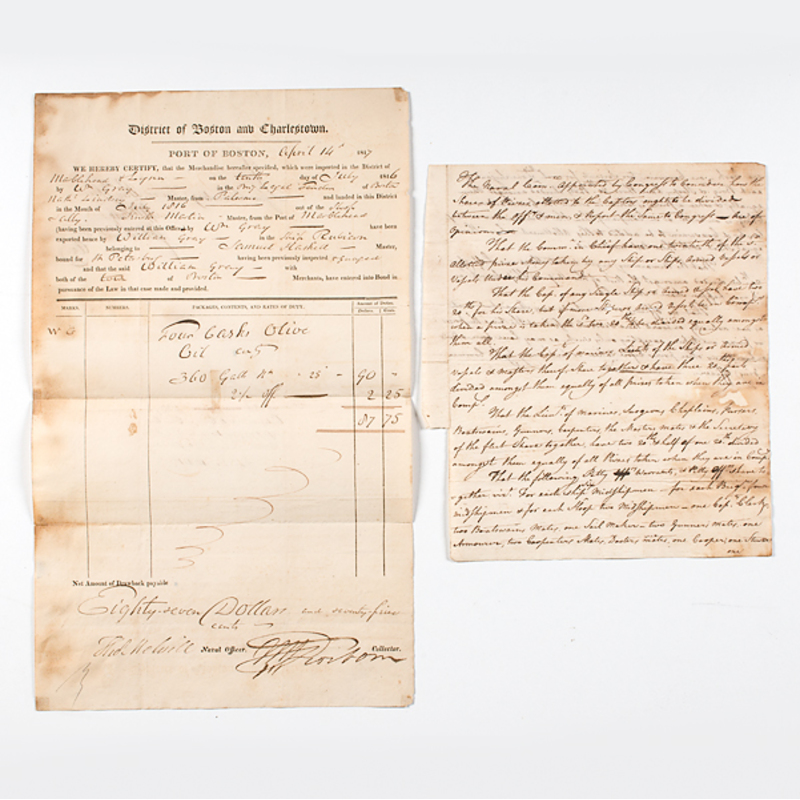 District of Boston and Charlestown.
PORT OF BOSTON, April 14th 1817
WE HEREBY CERTIFY, that the Merchandise hereafter specified, which were imported in the District of
Marblehead & Lynn on the tenth day of July 1816
by Wm Gray in the Brig Loyal of Boston
Master, from Palermo and landed in this District
in the Month of July 1816 out of the Sloop
Master, from the Port of Marblehead
(having been previously entered at this Office) by Wm Gray have been
exported hence by William Gray in the Ship Rubicon
belonging to Samuel Hackett Master,
bound for St Petersburg having been previously inspected & Gauged
and that the said William Gray with
both of the Town of Boston Merchants, have entered into Bond in
pursuance of the Law in that case made and provided.
MARKS. NUMBERS. PACKAGES, CONTENTS, AND RATES OF DUTY. Amount of Duties.
Dollars. Cents.
W G Four Casks Olive
Oil
360 Galls 25 90 "
2½ off 2 25
87 75
Net Amount of Drawback payable
Eighty-seven Dollars and seventy-five
cents
Thos Melvill Naval Officer. Collector.
The Naval Com. Appointed by Congress to Consider how the
Shares of Prizes allotted to the Captors ought to be divided
between the Offrs & men, & Report the Same to Congress
Opinion
That the Comm. in Chief have one twentieth of the Sd
allotted prize Money taken by any Ship or Ships, armed Vessels or
Vessels Under his Command
That the Capt. of any Single Ship or armed Vessel have two
20ths for his Share, but if more Ships or armed Vessels be in Comp.
when a prize is taken the two 20ths to be divided equally amongst
them all
That the Capt. of marines, Lieuts of the Ships or armed
Vessels & masters thereof Share together & have three 20th parts
divided amongst them equally of all prizes taken when they are in
Comp.
That the Lieuts of marines, Surgeons, Chaplains, Pursers,
Boatswains, Gunners, Carpenters, the Masters mates & the Secretary
of the fleet Share together, have two 20ths & half of one 20th divided
amongst them equally of all Prizes taken when they are in Comp.
That the following Petty Warrants, & Petty Offrs Share to
gether viz. For each Ship Midshipmen for each Brig
midshipmen & for each Sloop two Midshipmen one Capts Clerk
two Boatswains Mates, one Sail Maker two Gunners Mates, one
Armourer, two Carpenters Mates, Doctors mates, one Cooper, one Steward
one